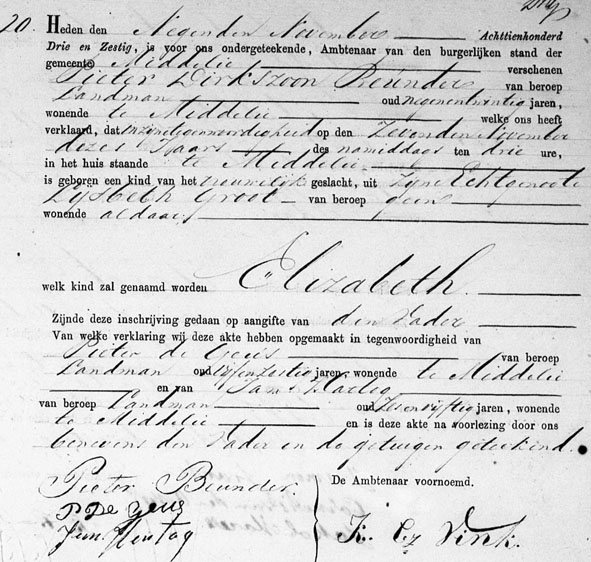 20. Heden den Negenden November Achttienhonderd
Drie en Zestig, is voor ons ondergeteekende, Ambtenaar van den burgerlijken stand der
gemeente Middelie verschenen
Pieter Dirkszoon Beunder van beroep
Landman oud negenentwintig jaren,
wonende te Middelie welke ons heeft
verklaard, dat in zijn tegenwoordigheid op den Zevenden November
dezes Jaars des namiddags ten drie ure,
in het huis staande te Middelie
is geboren een kind van het vrouwelijk geslacht, uit Zyne Echtgenoote
Lysbeth Groot van beroep geen
wonende aldaar
welk kind zal genaamd worden Elizabeth.
Zijnde deze inschrijving gedaan op aangifte van den Vader
Van welke verklaring wij deze akte hebben opgemaakt in tegenwoordigheid van
Pieter de van beroep
Landman oud vijfenzestig jaren, wonende te Middelie
en van Jan
van beroep Landman oud Zesenvijftig jaren, wonende
te Middelie en is deze akte na voorlezing door ons
benevens den Vader en de getuigen geteekend.
Pieter Beunder.
De Ambtenaar voornoemd.
K. Cz Vink.